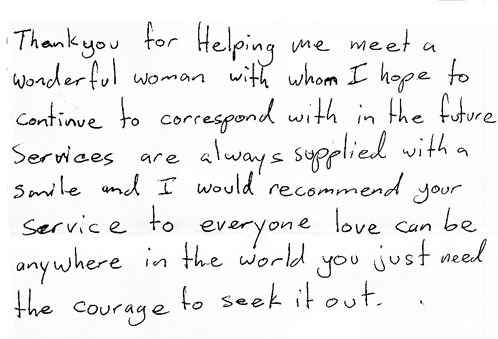 Thankyou for Helping me meet a
wonderful woman with whom I hope to
continue to correspond with in the future
Services are always supplied with a
smile and I would recommend your
service to everyone love can be
anywhere in the world you just need
the courage to seek it out.